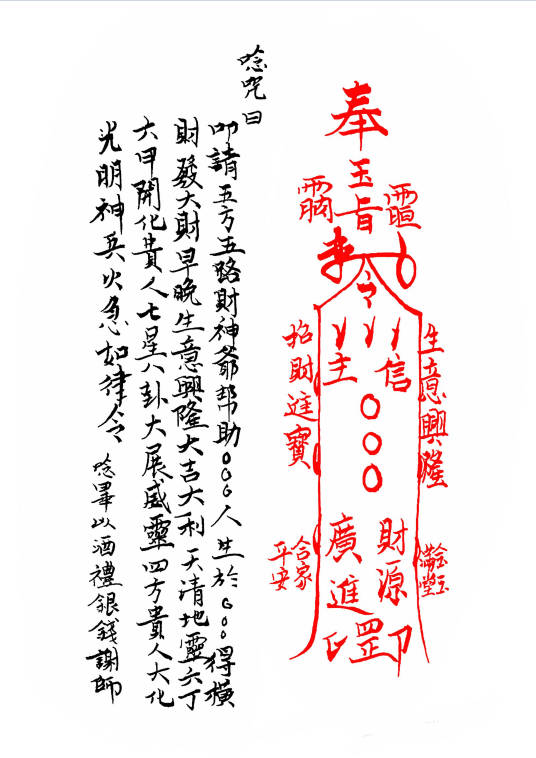 奉
玉旨
令
生意興隆
招財進寶
信
主
○○○
財源
廣進
罡
金玉
滿堂
合家
平安
唸咒曰
叩請五方五路財神爺幫助○○○人生於○○○得橫
財發大財早晚生意興隆大吉大利天清地靈六丁
六甲開化貴人七星八卦大展威靈四方貴人大化
光明神兵火急如律令
唸畢以酒禮銀錢謝師